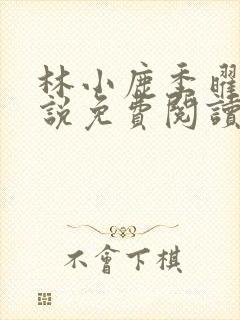 林小鹿季曜
說免費閱讀
不會下棋